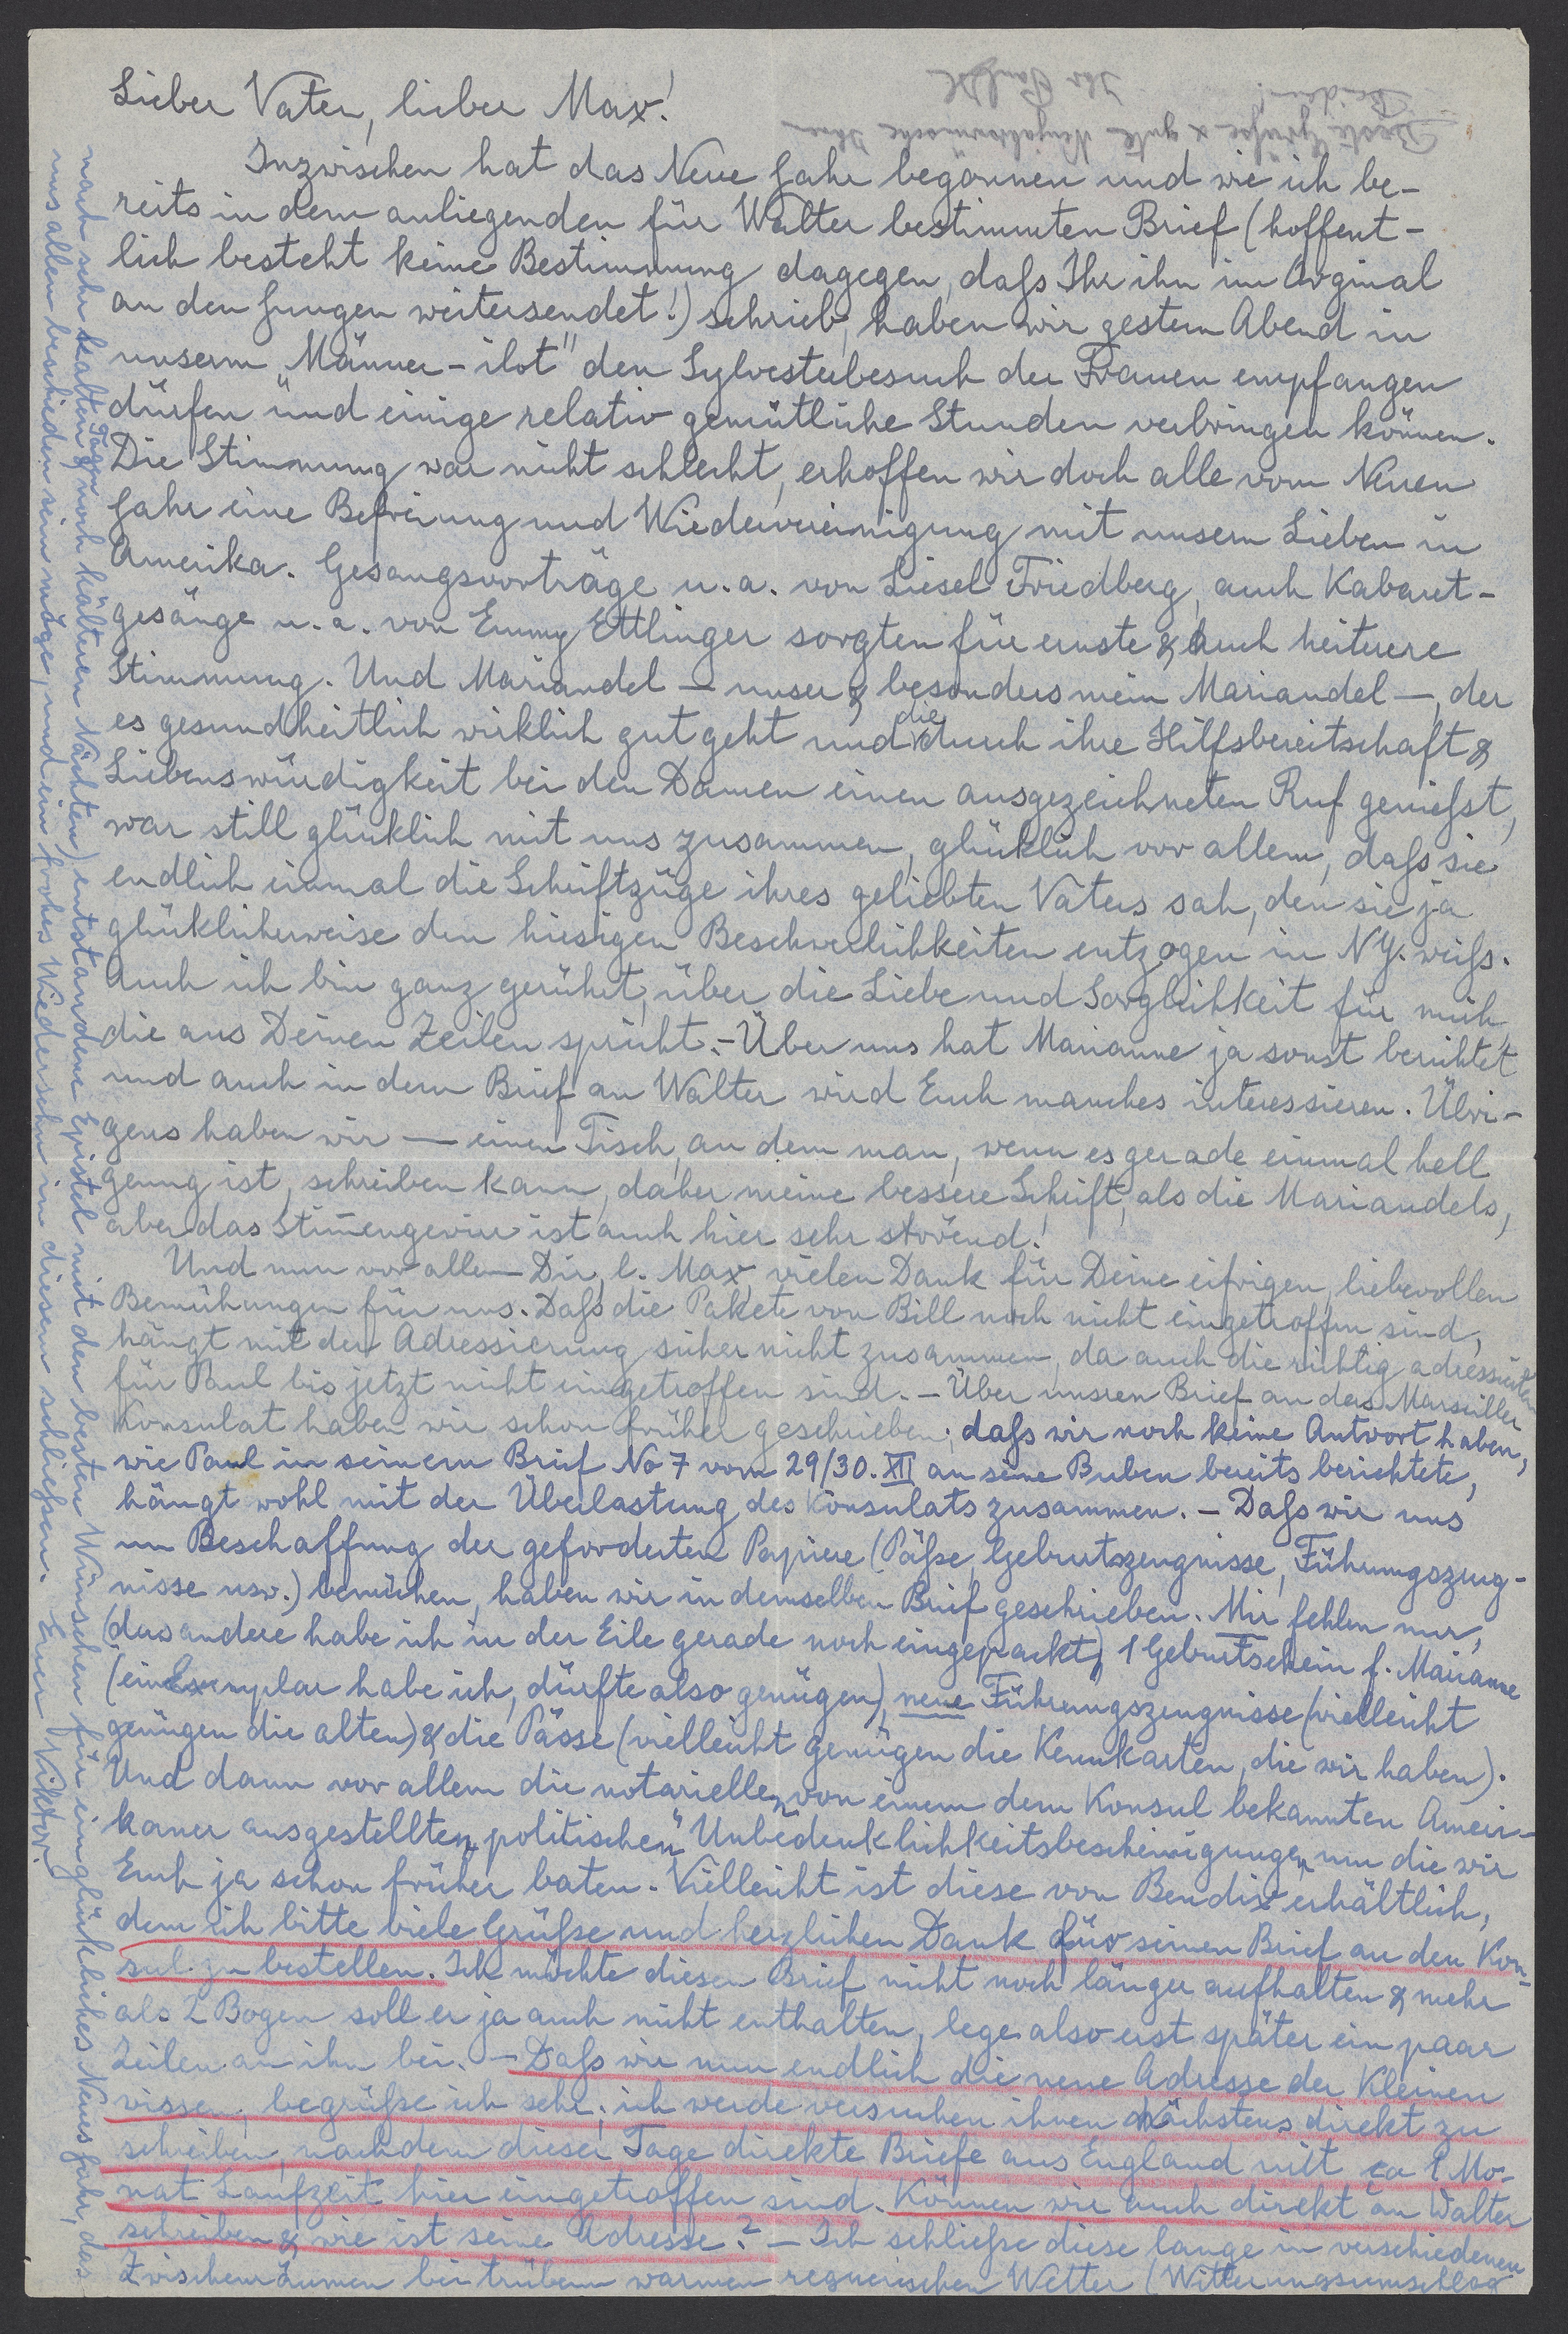 Lieber Vater, lieber Max!
Inzwischen hat das Neue Jahr begonnen und wie ich be-
reits in dem anliegenden für Walter bestimmten Brief (hoffent-
lich besteht keine Bestimmung dagegen, dafs Ihr ihn im Orginal
an den Jungen weitersendet!) schrieb, haben wir gestern Abend in
unserm „Männer-ilot" den Sylvesterbesuch der Frauen empfangen
dürfen und einige relativ gemütliche Stunden verbringen können.
Die Stimmung war nicht schlecht, erhoffen wir doch alle vom Neuen
Jahr eine Befreiung und Wiedervereinigung mit unsern Lieben in
Amerika. Gesangsvorträge u.a. von Liesel Friedberg, auch Kabaret-
gesänge u.a. von Emmy Ettlinger sorgten für ernste & auch heiterere
Stimmung. Und Mariandel — unser & besonders mein Mariandel —, der
es gesundheitlich wirklich gut geht und die durch ihre Hilfsbereitschaft &
Liebenswürdigkeit bei den Damen einen ausgezeichneten Ruf geniefst,
war still glücklich mit uns zusammen, glücklich vor allem, dafs sie
endlich einmal die Schriftzüge ihres geliebten Vaters sah, den sie ja
glücklicherweise den hiesigen Beschwerlichkeiten entzogen in NY. weifs.
Auch ich bin ganz gerührt, über die Liebe und Sorglichkeit für mich,
die aus Deinen Zeilen spricht. - Über uns hat Marianne ja sonst berichtet
und auch in dem Brief an Walter wird Euch manches interessieren. Übri-
gens haben wir — einen Tisch, an dem man, wenn es gerade einmal hell
genug ist, schreiben kann, daher meine bessere Schrift, als die Mariandels,
aber das Stimmengewirr ist auch hier sehr störend!
Und nun vor allem Dir, l. Max, vielen Dank für Deine eifrigen, liebevollen
Bemühungen für uns. Dafs die Pakete von Bill noch nicht eingetroffen sind,
hängt mit der Adressierung sicher nicht zusammen, da auch die richtig adressierten
für Paul bis jetzt nicht eingetroffen sind. - Über unsren Brief an das Marseiller
Konsulat haben wir schon früher geschrieben; dafs wir noch keine Antwort haben,
wie Paul in seinem Brief No 7 vom 29/30. XII an seine Buben bereits berichtete,
hängt wohl mit der Überlastung des Konsulats zusammen. - Dafs wir uns
um Beschaffung der geforderten Papiere (Päfse, Geburtszeugnisse, Führungszeug-
nisse usw.) bemühen, haben wir in demselben Brief geschrieben. Mir fehlen nur,
(das andere habe ich in der Eile gerade noch eingepackt), 1 Geburtschein f. Marianne
(ein Exemplar habe ich, dürfte also genügen), neue Führungszeugnisse (vielleicht
genügen die alten) & die Pässe (vielleicht genügen die Kennkarten, die wir haben).
Und dann vor allem die notariellen von einem dem Konsul bekannten Ameri-
kaner ausgestellten „politischen" Unbedenklichkeitsbescheinigungen um die wir
Euch ja schon früher baten. Vielleicht ist diese von Bendix erhältlich,
dem ich bitte viele Grüfse und herzlichen Dank für seinen Brief an den Kon-
sul zu bestellen. Ich möchte diesen Brief nicht noch länger aufhalten & mehr
als 2 Bogen soll er ja auch nicht enthalten, lege also erst später ein paar
Zeilen an ihn bei. - Dafs wir nun endlich die neue Adresse der Kleinen
wissen, begrüfse ich sehr; ich werde versuchen ihnen nächstens direkt zu
schreiben, nachdem dieser Tage direkte Briefe aus England mit ca 1 Mo-
nat Laufzeit hier eingetroffen sind. Können wir auch direkt an Walter
schreiben & wie ist seine Adresse? - Ich schliefse diese lange in verschiedenen
Zwischenräumen bei trübem warmen regnerischen Wetter (Witterungsumschlag
nach sehr kalten Tagen & noch kälteren Nächten) entstandene Epistel mit den besten Wünschen für ein glückliches Neues Jahr, das
uns allen beschieden sein möge, und ein frohes Wiedersehn in diesem schliefsen. Euer Viktor.
Beste Grüfse & gute Neujahrswünsche Ihnen
Beiden!
Ihr Paul